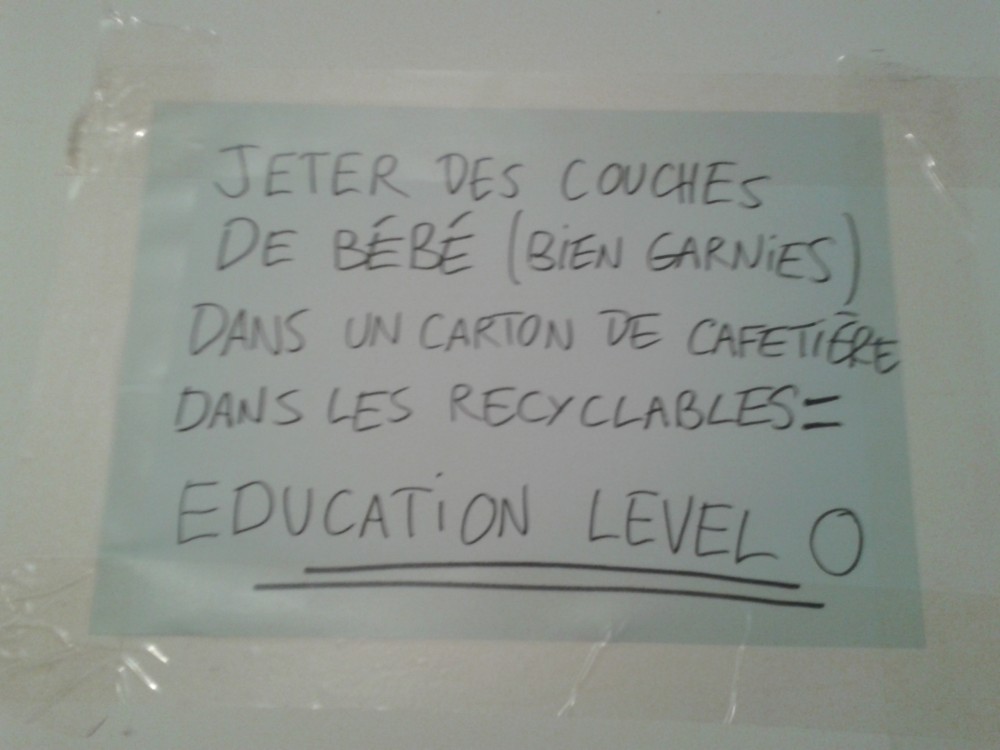 JETER DES COUCHES
DE BÉBÉ (BiEN GARNiES)
DANS UN CARTON DE CAFETiÈRE
DANS LES RECYCLABLES=
EDUCATiON LEVEL 0